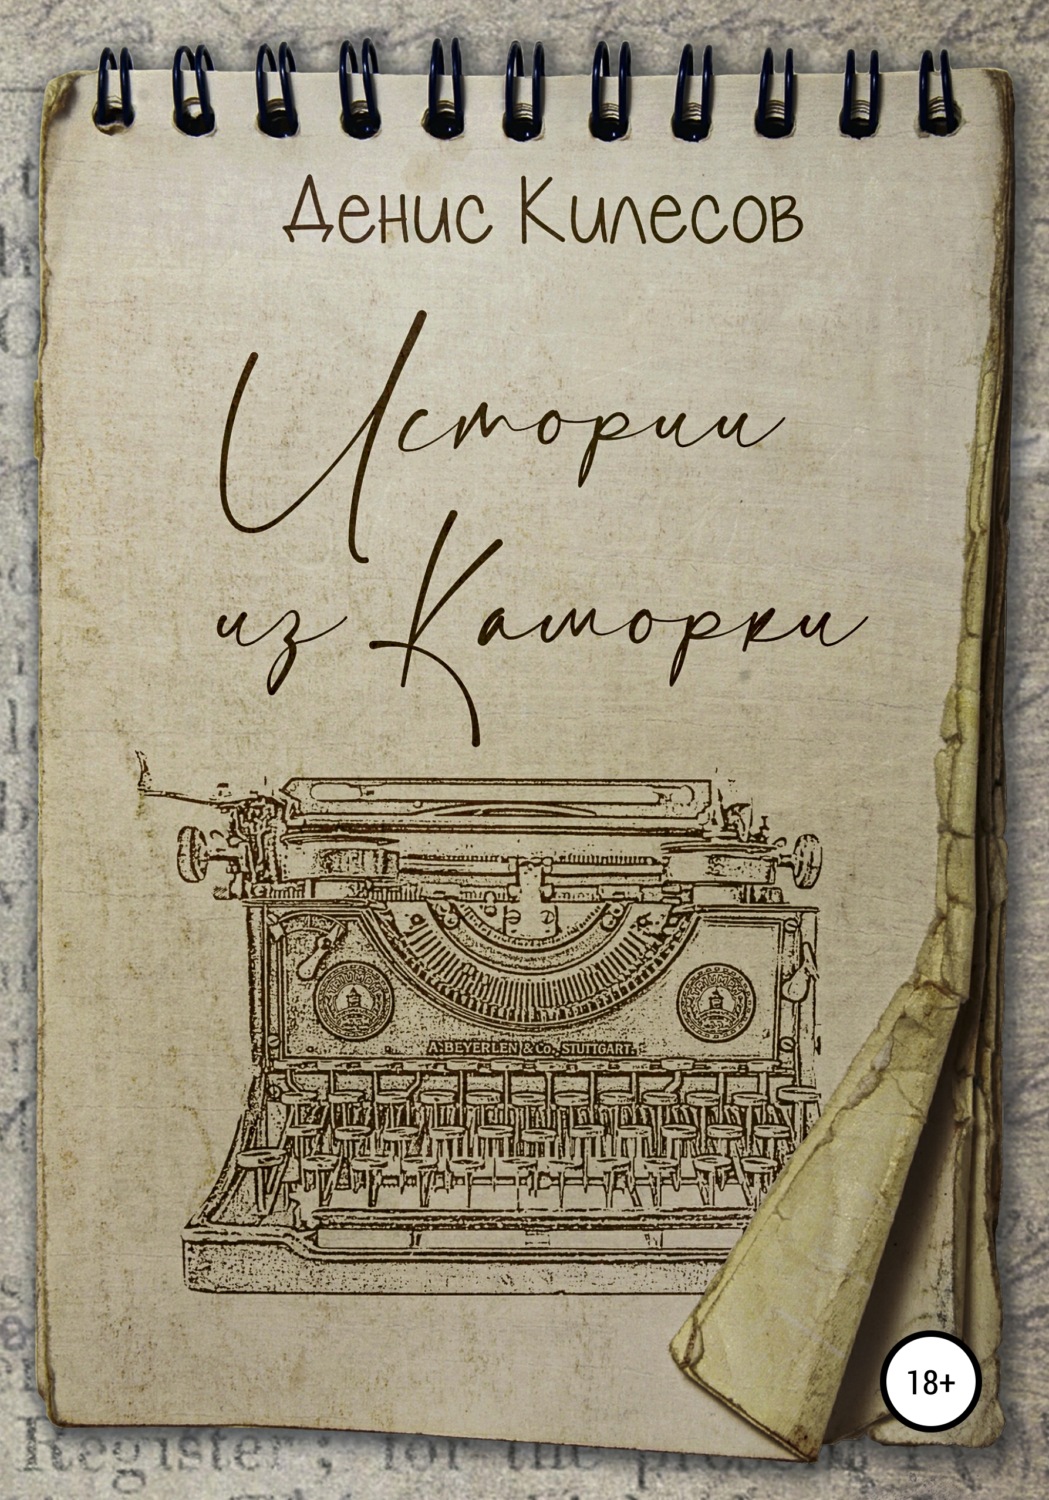 Денис Килесов
Истории
из Каморки
A. BEYERLEN & Co., STUTTGART.
18+
Register; for the present